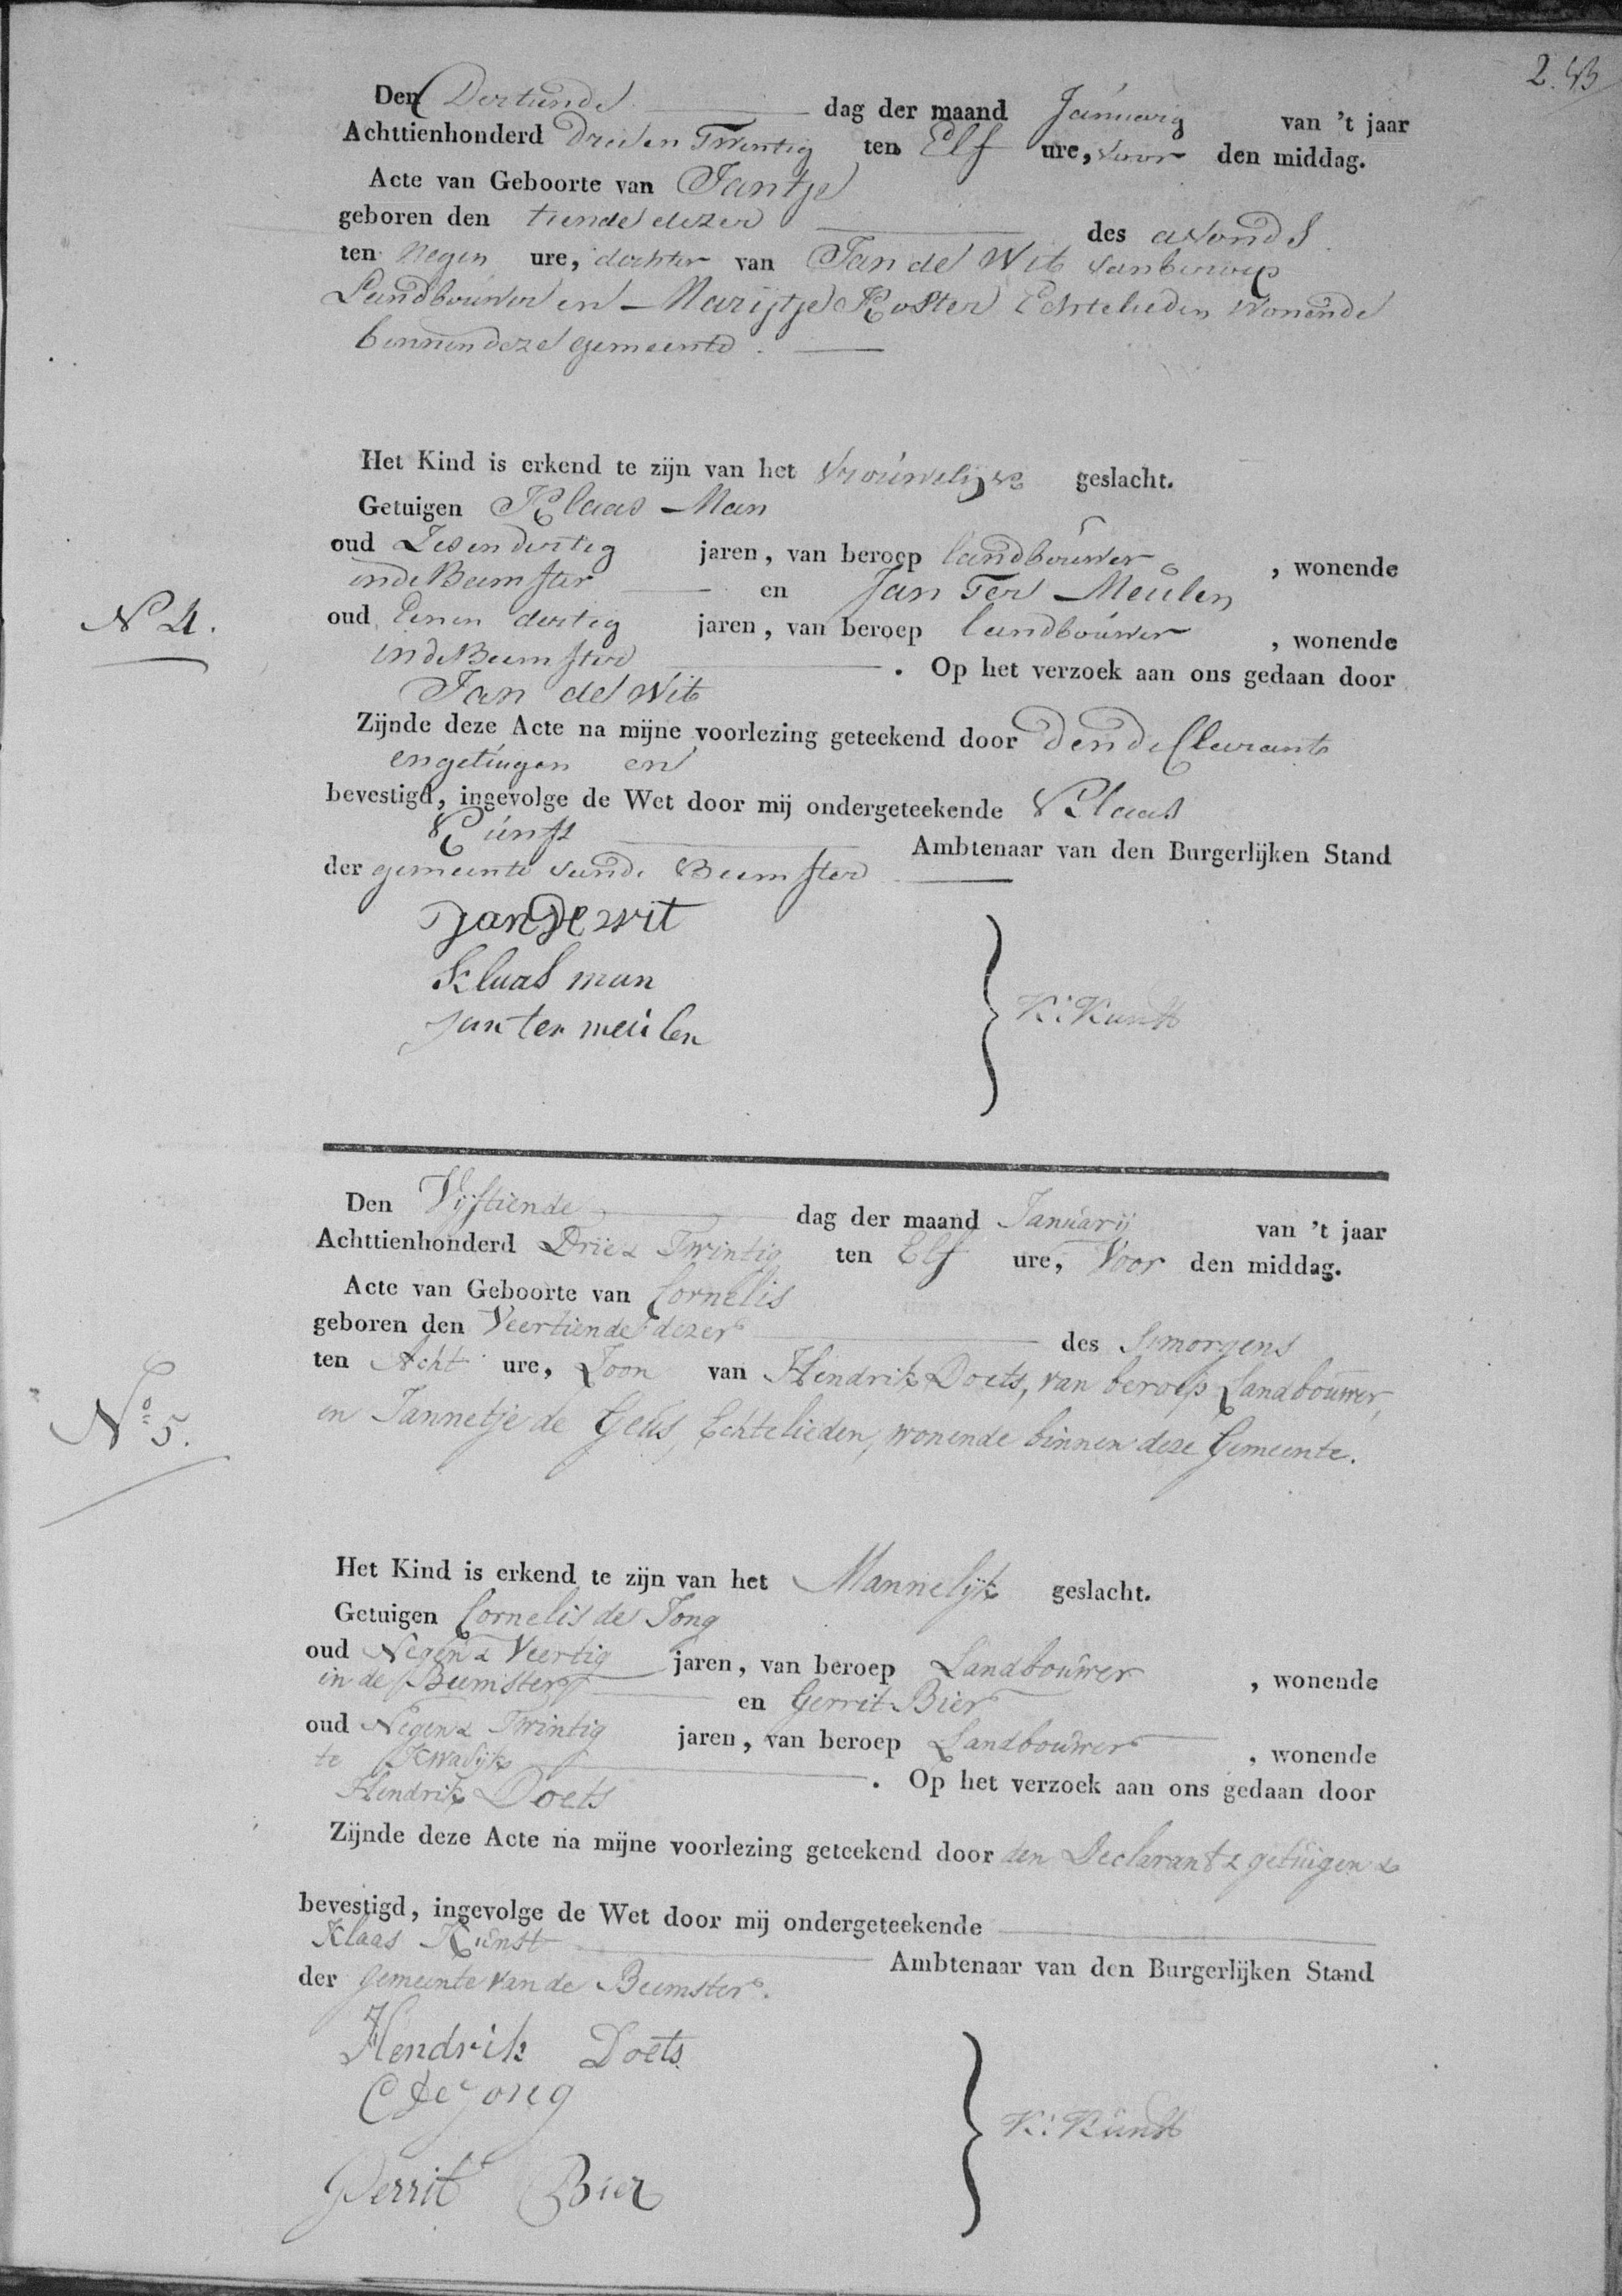 2. B
Den Dertiende dag der maand Januarij van 't jaar
Achttienhonderd Drie en Twintig ten Elf ure, voor den middag.
Acte van Geboorte van Jantje
geboren den tiende dezer des avonds
ten negen ure, dochter van Jan de Wit van beroep
Landbouwer en Marijtje Koster Echtelieden Wonende
binnen deze gemeente.
Het Kind is erkend te zijn van het Vrouwelijk geslacht.
Getuigen Klaas Man
oud Zes en dertig jaren, van beroep landbouwer, wonende
in de Beemster en Jan Ter Meulen
N 4.
oud Een en dertig jaren, van beroep landbouwer, wonende
in de Beemster. Op het verzoek aan ons gedaan door
Jan de Wit
Zijnde deze Acte na mijne voorlezing geteekend door den declarant
en getuigen en
bevestigd, ingevolge de Wet door mij ondergeteekende Klaas
Kunst Ambtenaar van den Burgerlijken Stand
der gemeente van de Beemster
Jan de wit
Klaas man
Jan ter meulen
K: Kunst
Den Vijftiende dag der maand Januarij van 't jaar
Achttienhonderd Drie & Twintig ten Elf ure, Voor den middag.
Acte van Geboorte van Cornelis
geboren den Veertiende dezer des Smorgens
ten Acht ure, Zoon van Hendrik Doets, van beroep Landbouwer,
en Jannetje de Geus, Echtelieden, wonende binnen deze Gemeente.
No 5.
Het Kind is erkend te zijn van het Mannelijk geslacht.
Getuigen Cornelis de Jong
oud Negen & Veertig jaren, van beroep Landbouwer, wonende
in de Beemster en Gerrit Bier
oud Negen & Twintig jaren, van beroep Landbouwer, wonende
te Kwadijk. Op het verzoek aan ons gedaan door
Hendrik Doets
Zijnde deze Acte na mijne voorlezing geteekend door den Declarant & getuigen &
bevestigd, ingevolge de Wet door mij ondergeteekende
Klaas Kunst Ambtenaar van den Burgerlijken Stand
der Gemeente van de Beemster.
Hendrik Doets
C de Jong
Gerrit Bier
K: Kunst